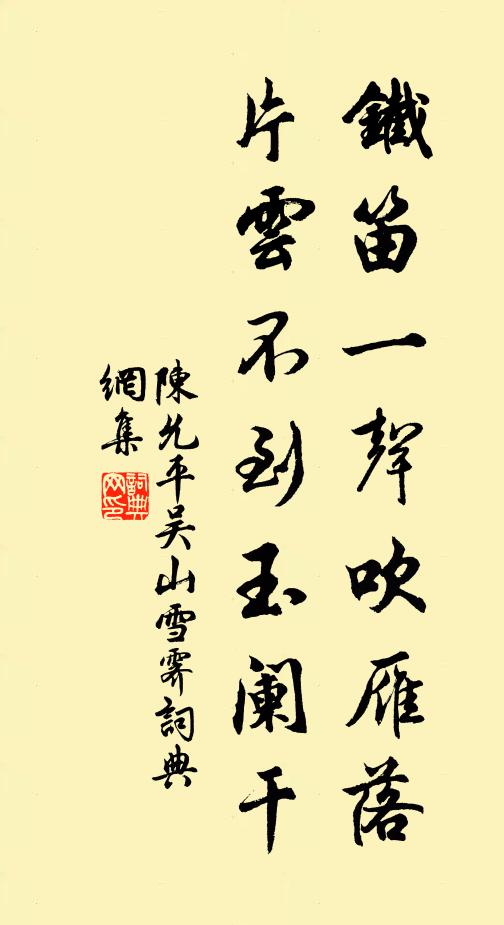 鐵笛一聲吹雁落
片雲不到玉闌干
陳允平吳山雪霽詞典
網集
詞典
网印